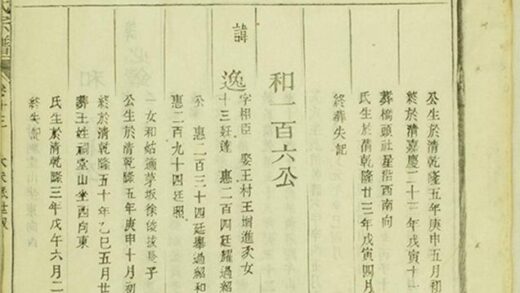 公生於清乾隆五年庚申五月初
終於清嘉慶二十三年戊寅十一
葬橋頭社屋後西南向
氏生於清乾隆廿三年戊寅四月
終葬失記
和一百六公
諱 逸
字相臣 娶王村王增進次女
十三廷達 惠二百四廷耀過繼和
公 惠二百三十四廷舉過繼和
惠二百九十四廷照
一女和姑適茅坂徐 長子
公生於清乾隆五年庚申十月初
終於清乾隆五十年乙巳五月廿
葬王姓祠堂山坐西向東
氏生於清乾隆三年戊午六月二
終葬失記
氏宗譜
卷十三